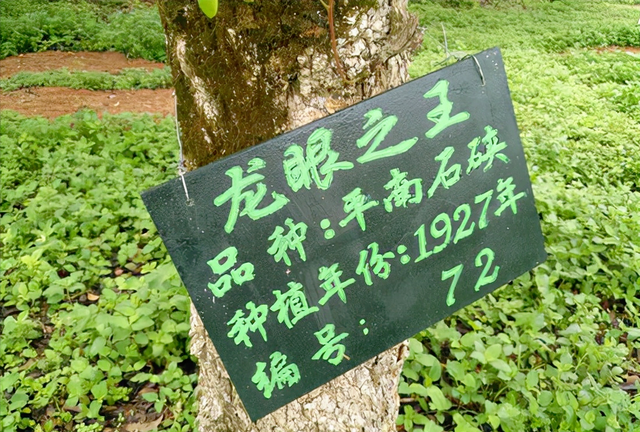 龙眼之王
品种:平南石硖
种植年份:1927年
编号: 72